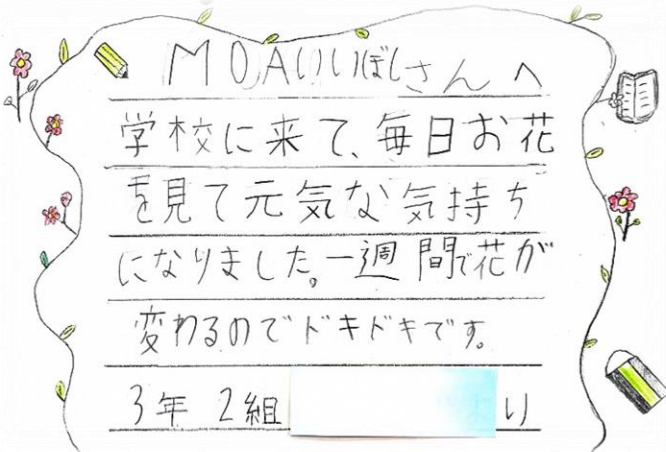 MOAいいぼしさんへ
学校に来て、毎日お花
を見て元気な気持ち
になりました。一週間で花が
変わるのでドキドキです。
3年2組 より